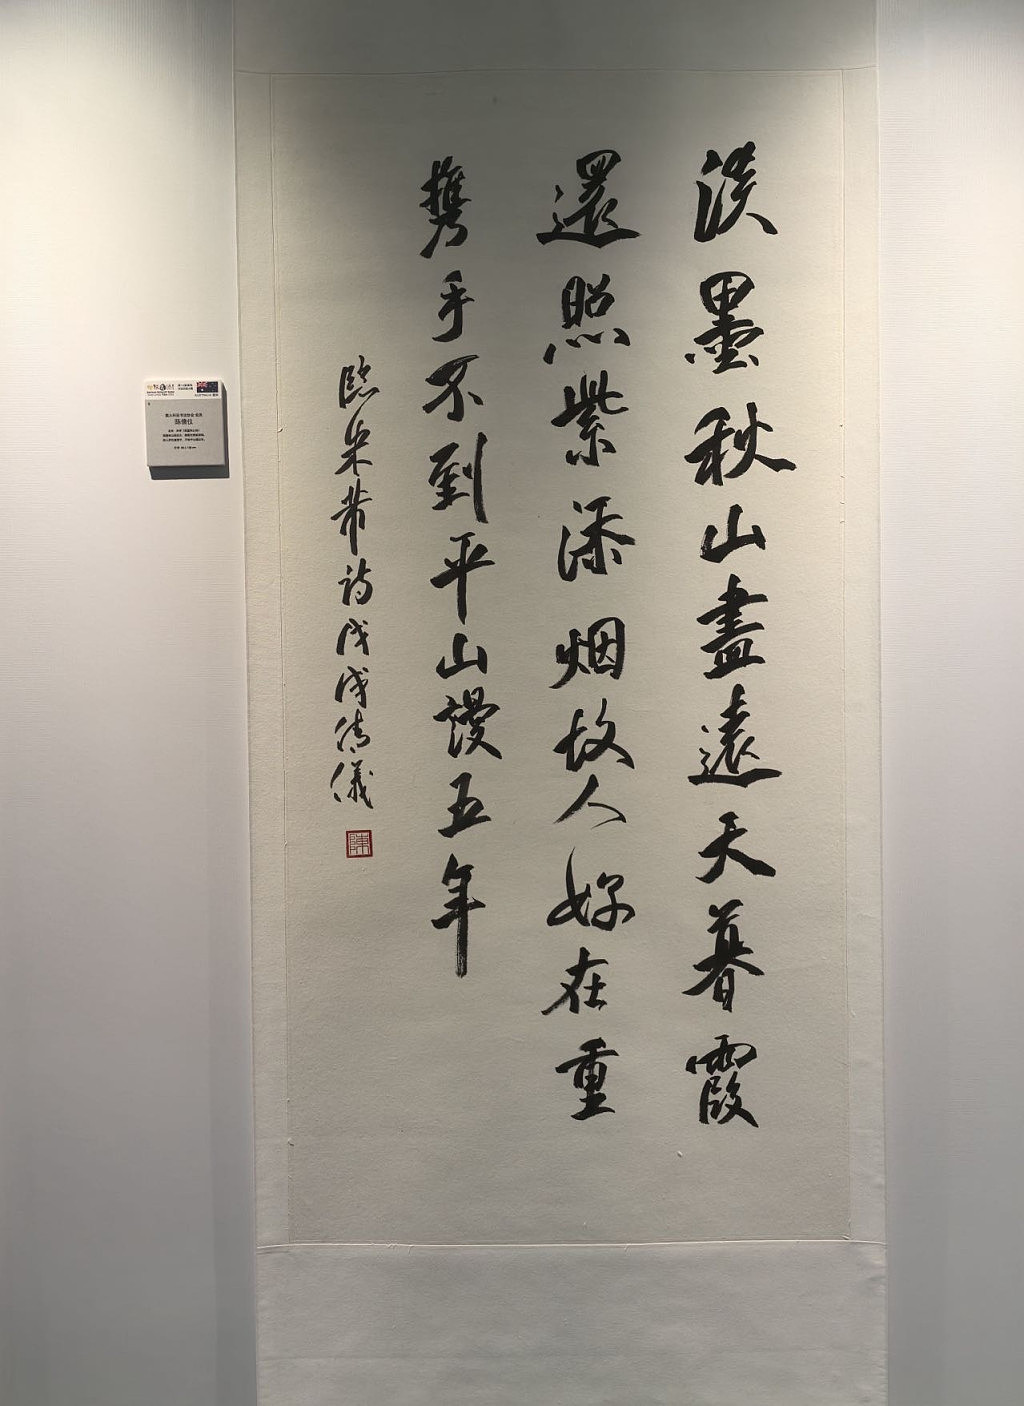 淡墨秋山盡遠天暮霞
還照紫添烟故人好在重
携手不到平山謾五年
臨米芾詩戊戌倩儀
陳